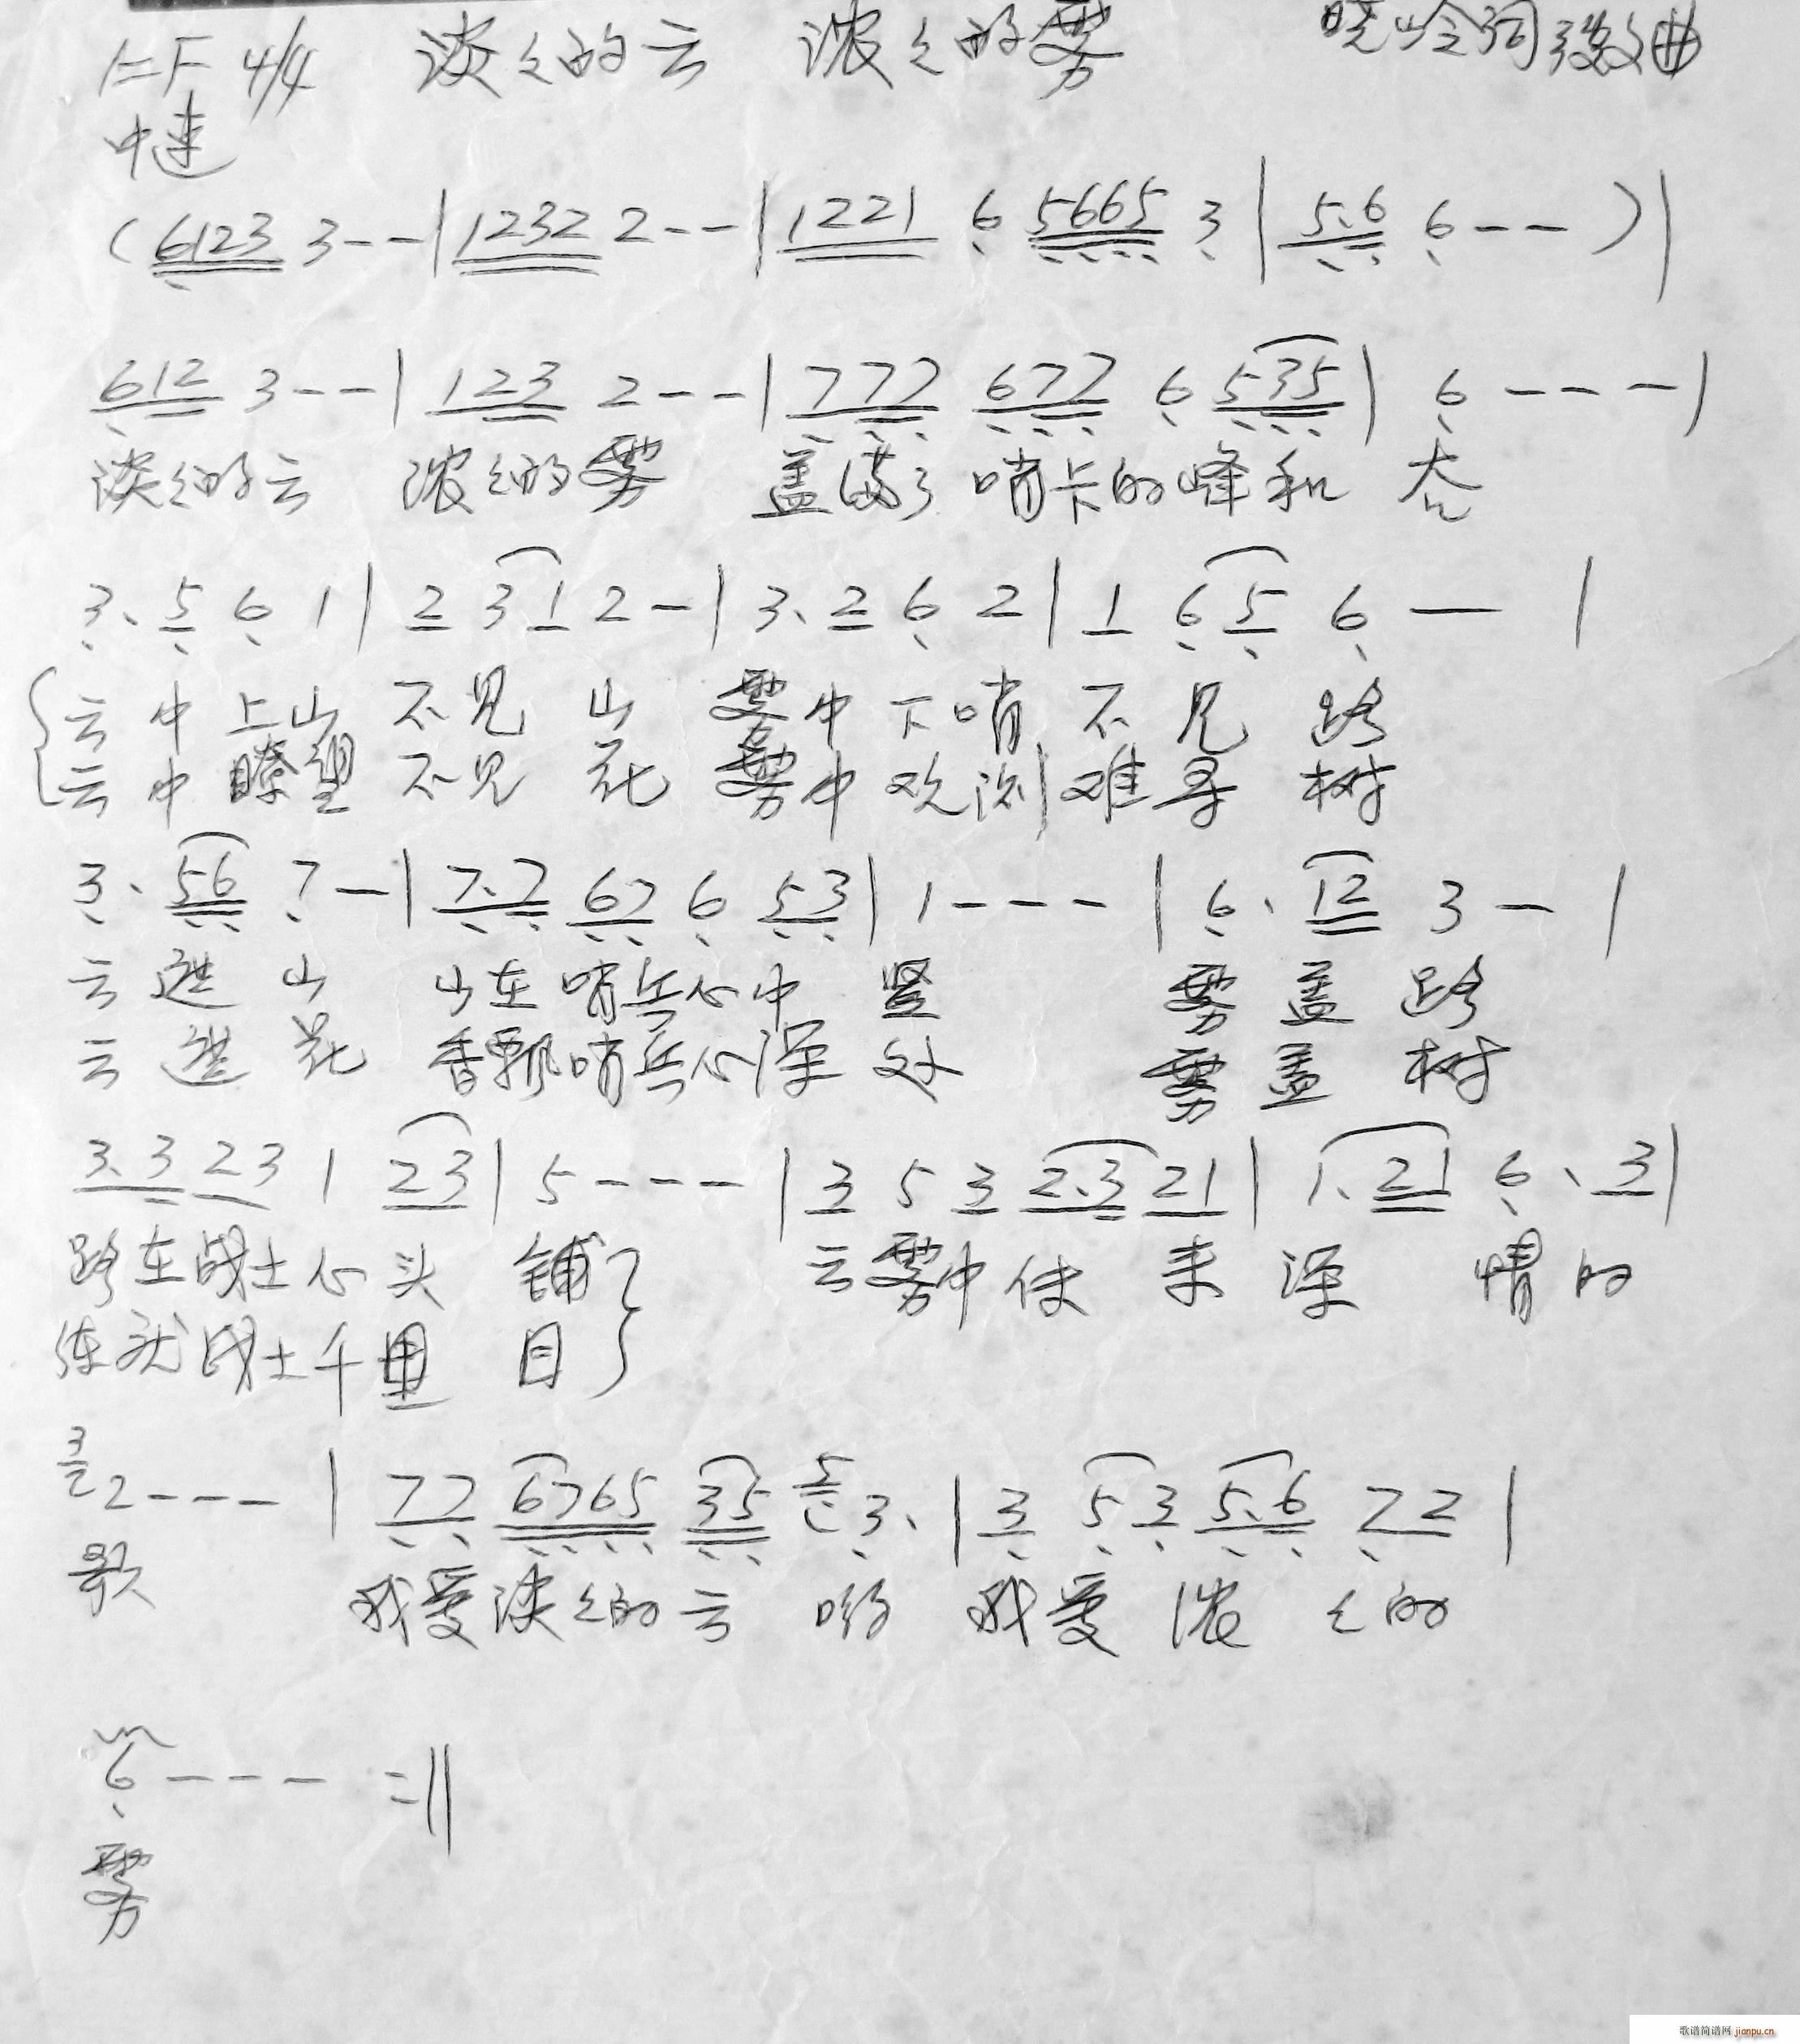 1=F 4/4 淡々的云 浓々的雾 晓岭词 
中速
(6123 3--|1232 2--|1221 6 5665 3|5.6 6--)|
612 3--|123 2--|777 677 6 535|6---|
淡々的云 浓々的雾 盖满了哨卡的峰和谷
3.5 6 1|2 3 1 2-|3.2 6 2|1 6 5 6—|
云中上山不见山 雾中下哨不见路
云中瞭望不见花 雾中观测难寻树
3.56 7-|7.7 67 6 53|1---|6.12 3-|
云遮山 山在哨兵心中竖 雾盖路
云遮花 香飘哨兵心深处 雾盖树
3.3 23 1 23|5---|3 5 3 2.3 21|1.21 6.3|
路在战士心头铺 云雾中传来深情的
练就战士千里目
3 2 2---|77 6765 35 5 3.|3 5 3 5.6 72|
歌 我爱淡々的云哟 我爱浓々的
6---=||
雾
歌谱简谱网 jianpu.cn